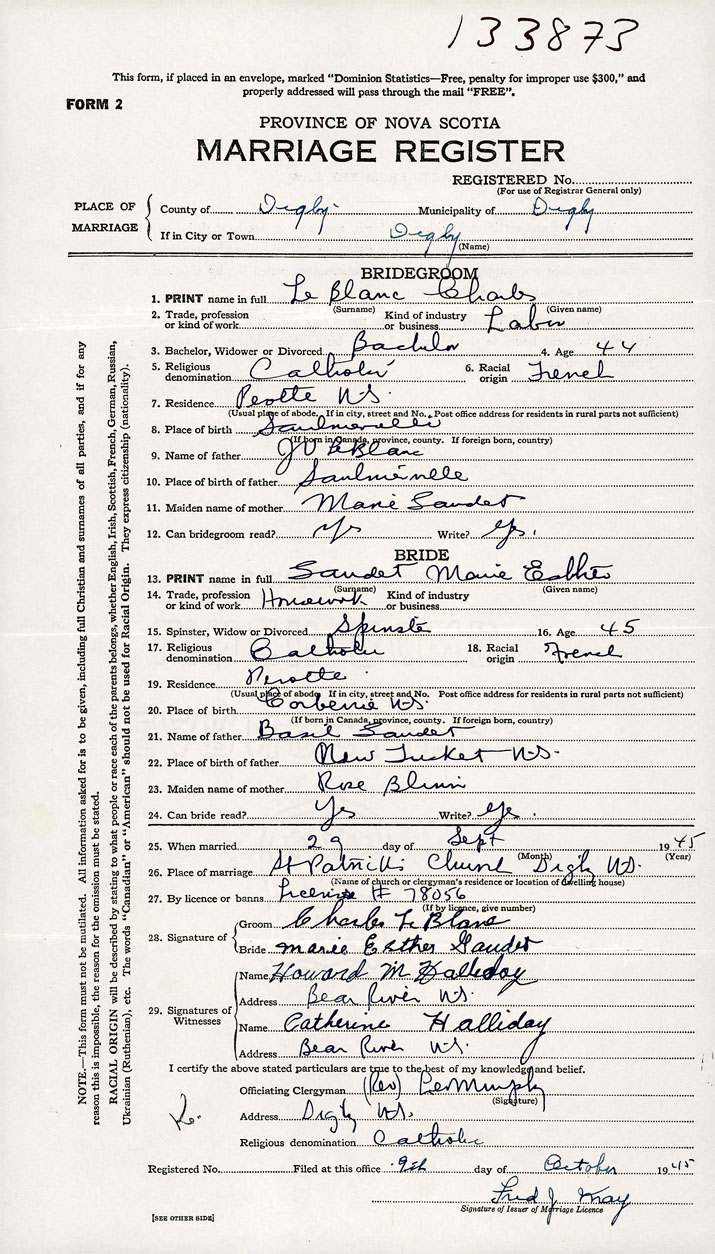 133873
This form, if placed in an envelope, marked "Dominion Statistics—Free, penalty for improper use $300," and
properly addressed will pass through the mail "FREE".
FORM 2
PROVINCE OF NOVA SCOTIA
MARRIAGE REGISTER
REGISTERED No.
(For use of Registrar General only)
PLACE OF MARRIAGE
County of Digby Municipality of Digby
If in City or Town Digby
(Name)
BRIDEGROOM
1. PRINT name in full Le Blanc Charles
(Surname) (Given name)
2. Trade, profession or kind of work Kind of industry or business Labor
3. Bachelor, Widower or Divorced Bachelor 4. Age 44
5. Religious denomination Catholic 6. Racial origin French
7. Residence N.S.
(Usual place of abode. If in city, street and No. Post office address for residents in rural parts not sufficient)
8. Place of birth Saulnierville
(If born in Canada, province, county. If foreign born, country)
9. Name of father LeBlanc
10. Place of birth of father Saulnierville
11. Maiden name of mother Marie Gaudet
12. Can bridegroom read? Yes Write? Yes.
BRIDE
13. PRINT name in full Gaudet Marie Esther
(Surname) (Given name)
14. Trade, profession or kind of work Housework Kind of industry or business
15. Spinster, Widow or Divorced Spinster 16. Age 45
17. Religious denomination Catholic 18. Racial origin French
19. Residence
(Usual place of abode. If in city, street and No. Post office address for residents in rural parts not sufficient)
20. Place of birth Corberrie N.S.
(If born in Canada, province, county. If foreign born, country)
21. Name of father Basil Gaudet
22. Place of birth of father New Tusket N.S.
23. Maiden name of mother Rose Blinn
24. Can bride read? Yes Write? Yes.
25. When married 29 day of Sept 1945
(Month) (Year)
26. Place of marriage St Patricks Church Digby N.S.
(Name of church or clergyman's residence or location of dwelling house)
27. By licence or banns License # 78056
(If by licence, give number)
28. Signature of
Groom Charles Le Blanc
Bride Marie Esther Gaudet
29. Signatures of Witnesses
Name Howard M Halliday
Address Bear River N.S.
Name Catherine Halliday
Address Bear River N.S.
I certify the above stated particulars are true to the best of my knowledge and belief.
Officiating Clergyman (Rev) Murphy
(Signature)
Address Digby N.S.
Religious denomination Catholic
Registered No. Filed at this office 9th day of October 1945
Fred J. Kay
Signature of Issuer of Marriage Licence
[SEE OTHER SIDE]
NOTE.—This form must not be mutilated. All information asked for is to be given, including full Christian and surnames of all parties, and if for any
reason this is impossible, the reason for the omission must be stated.
RACIAL ORIGIN will be described by stating to what people or race each of the parents belongs, whether English, Irish, Scottish, French, German, Russian,
Ukrainian (Ruthenian), etc. The words "Canadian" or "American" should not be used for Racial Origin. They express citizenship (nationality).